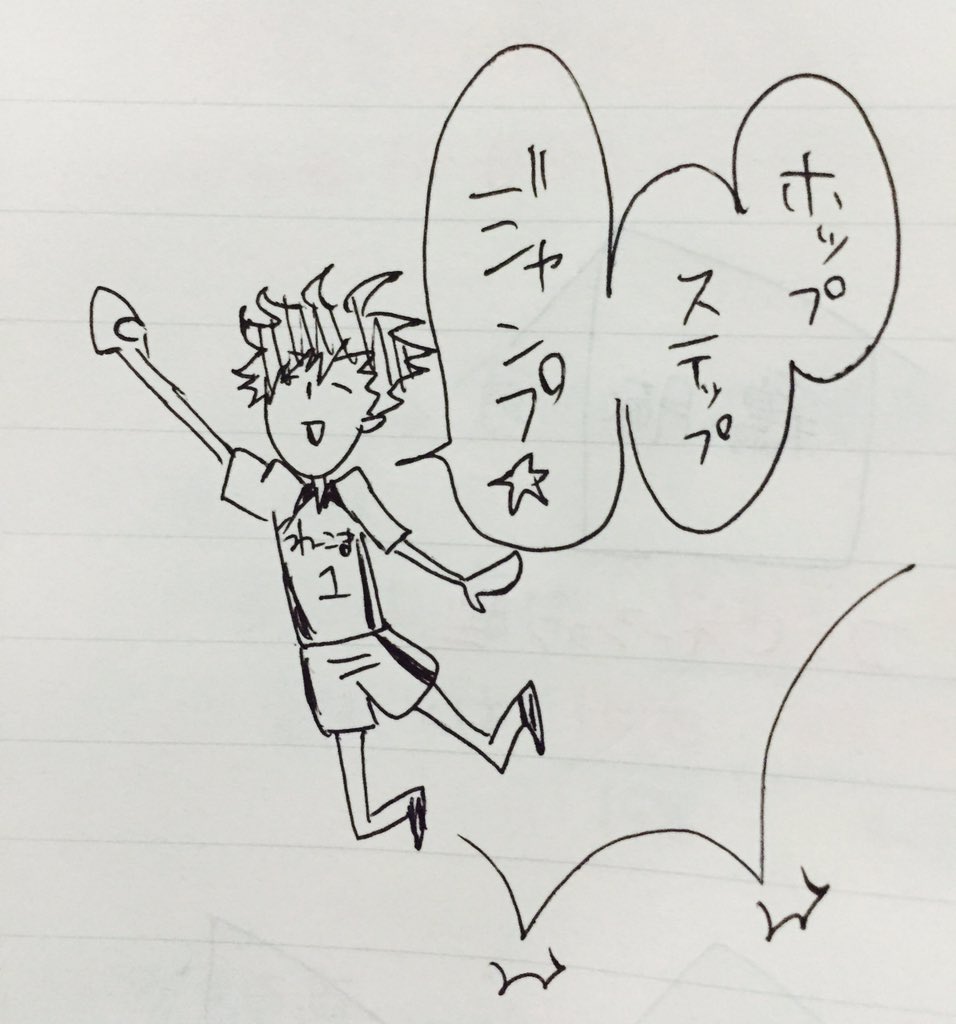 ホップ
ステップ
ジャンプ☆
ねこま
1